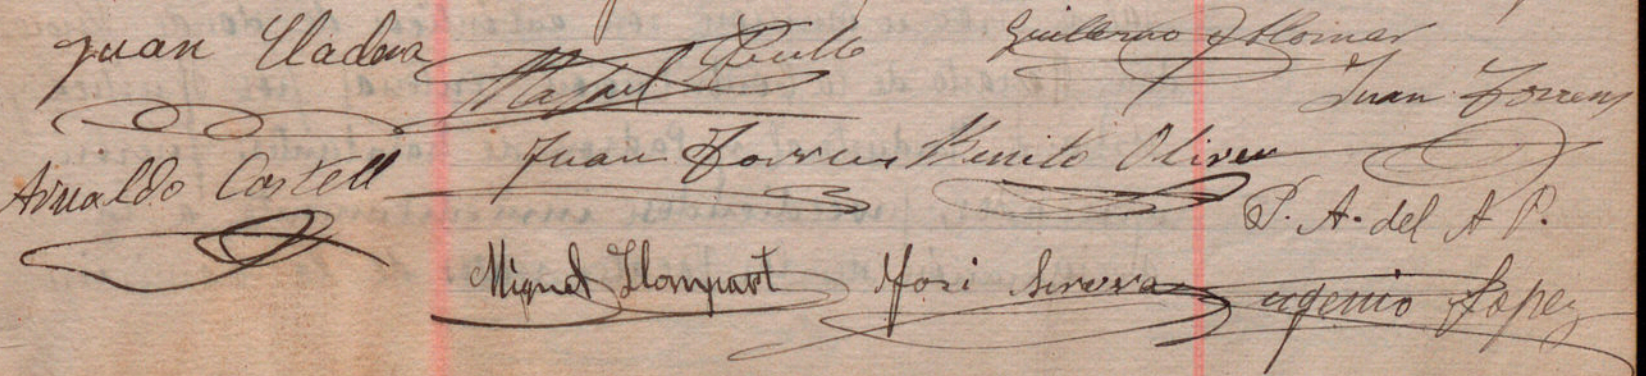 Juan Lladera Rafael Rullo Guillermo Alomar
Juan Torrens
Arnaldo Castell Juan Torrens Benito Oliver
P. A. del A P.
Miguel Llompart José Servera Eugenio Lopez